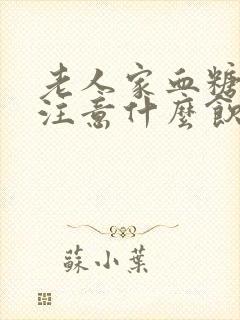 老人家血糖
注意什麼飲
蘇小葉